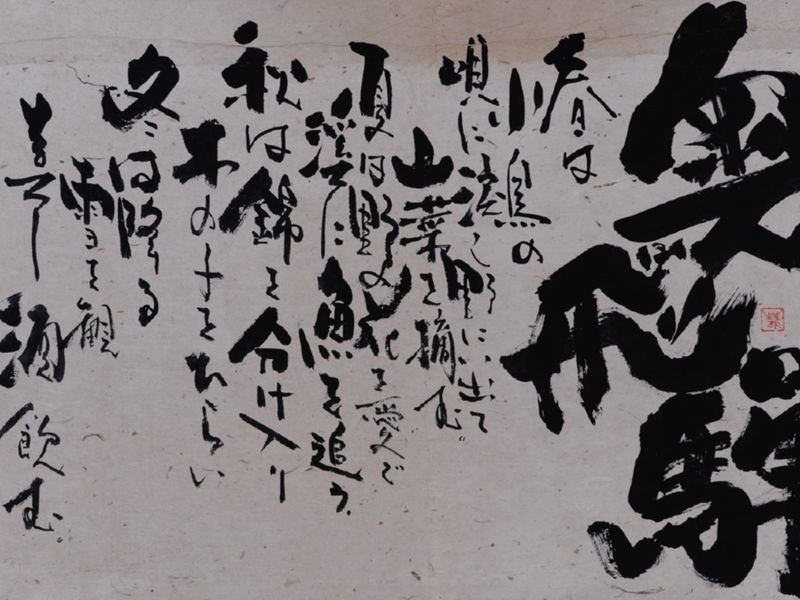 奥飛騨
春は
小鳥の
唄に 野に出て
山菜を摘む。
夏は野の花を愛で
渓に魚を追う。
秋は錦を分け入り
木の子を
冬は降る
雪を観
酒飲む。